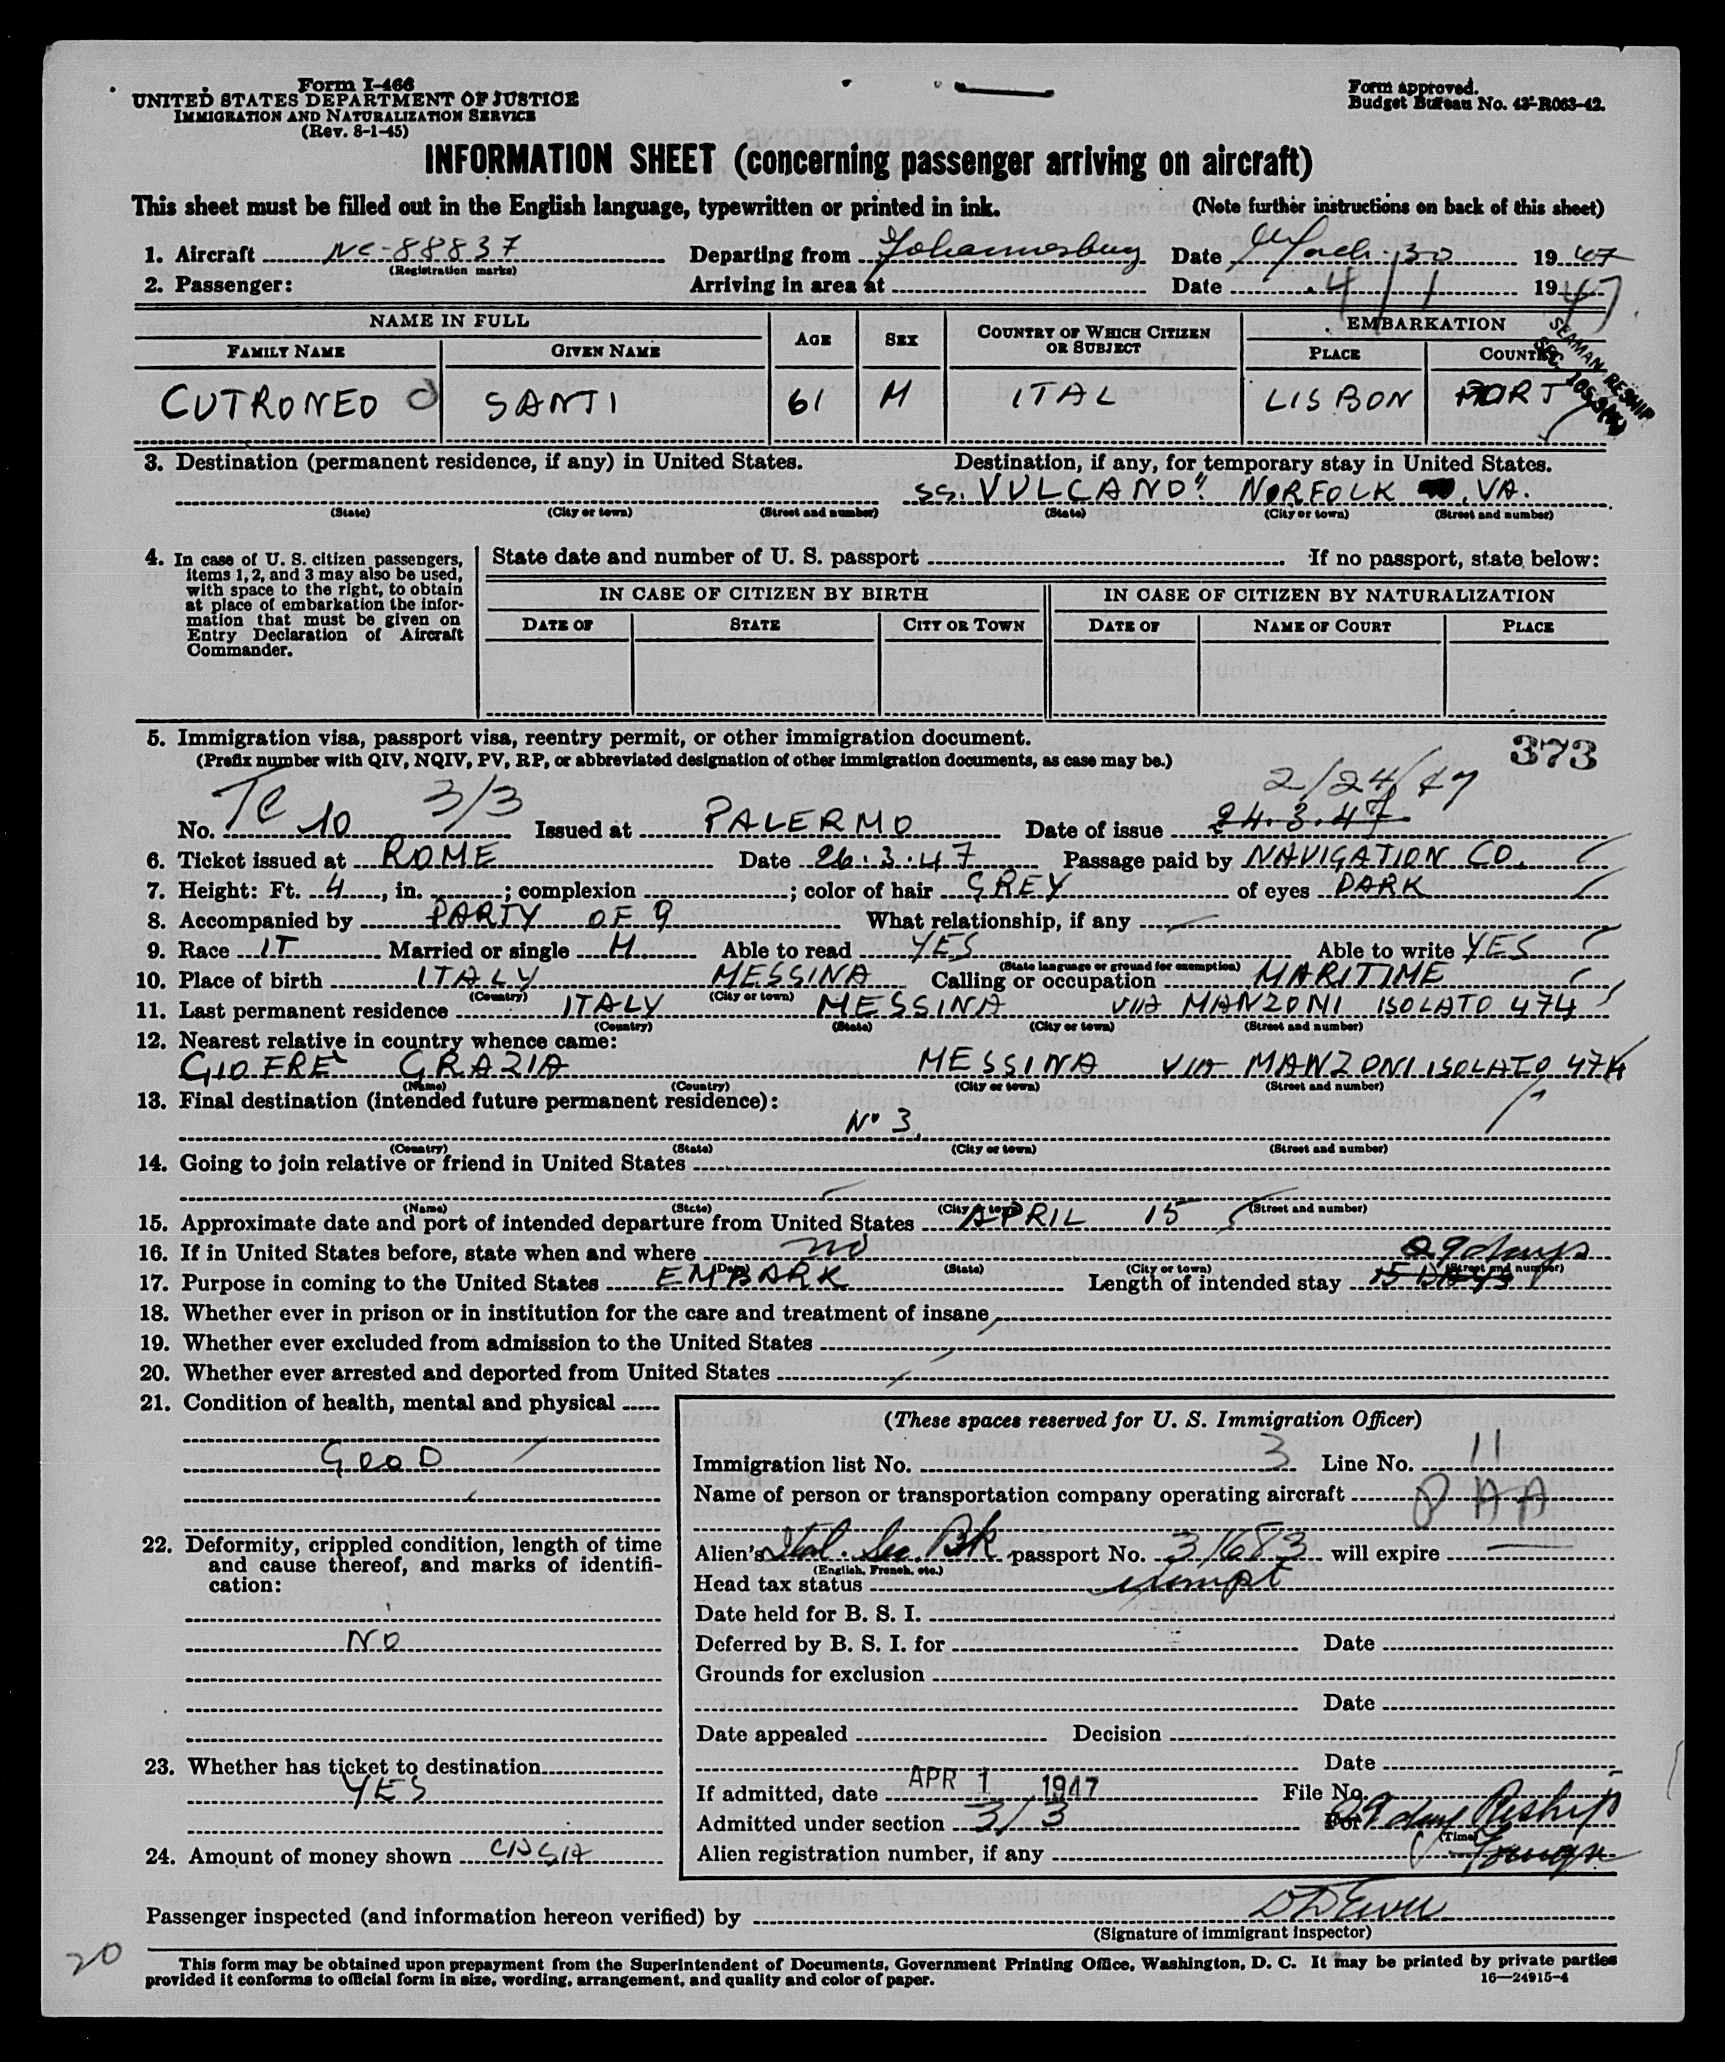 Form I-466
UNITED STATES DEPARTMENT OF JUSTICE
IMMIGRATION AND NATURALIZATION SERVICE
(Rev. 8-1-45)
Form approved.
Budget Bureau No. 43-R063-42.
INFORMATION SHEET (concerning passenger arriving on aircraft)
This sheet must be filled out in the English language, typewritten or printed in ink. (Note further instructions on back of this sheet)
1. Aircraft NC-88837 Departing from Johannesburg Date March 30 1947
(Registration marks)
2. Passenger: Arriving in area at Date 4/1 1947
NAME IN FULL AGE SEX COUNTRY OF WHICH CITIZEN OR SUBJECT EMBARKATION
FAMILY NAME GIVEN NAME PLACE COUNTRY
SEAMAN RESHIP
CUTRONEO SANTI 61 M ITAL LISBON PORT
3. Destination (permanent residence, if any) in United States. Destination, if any, for temporary stay in United States.
SS. VULCANO". NORFOLK VA.
(State) (City or town) (Street and number) (State) (City or town) (Street and number)
4. In case of U. S. citizen passengers, items 1, 2, and 3 may also be used, with space to the right, to obtain at place of embarkation the information that must be given on Entry Declaration of Aircraft Commander.
State date and number of U. S. passport If no passport, state below:
IN CASE OF CITIZEN BY BIRTH IN CASE OF CITIZEN BY NATURALIZATION
DATE OF STATE CITY OR TOWN DATE OF NAME OF COURT PLACE
5. Immigration visa, passport visa, reentry permit, or other immigration document.
(Prefix number with QIV, NQIV, PV, RP, or abbreviated designation of other immigration documents, as case may be.)
373
2/24/47
No. TC 10 3/3 Issued at PALERMO Date of issue 24.3.47
6. Ticket issued at ROME Date 26.3.47 Passage paid by NAVIGATION CO.
7. Height: Ft. 4, in. ; complexion ; color of hair GREY of eyes DARK
8. Accompanied by PARTY OF 9 What relationship, if any
9. Race IT Married or single M Able to read YES Able to write YES
(State language or ground for exemption)
10. Place of birth ITALY MESSINA Calling or occupation MARITIME
(Country) (City or town)
11. Last permanent residence ITALY MESSINA VIA MANZONI ISOLATO 474
(Country) (State) (City or town) (Street and number)
12. Nearest relative in country whence came:
GIOFRE' GRAZIA MESSINA VIA MANZONI ISOLATO 474
(Name) (Country) (City or town) (Street and number)
13. Final destination (intended future permanent residence):
No 3.
(Country) (State) (City or town) (Street and number)
14. Going to join relative or friend in United States
(Name) (State) (City or town) (Street and number)
15. Approximate date and port of intended departure from United States APRIL 15
16. If in United States before, state when and where no
29 days
(Date) (State) (City or town) (Street and number)
17. Purpose in coming to the United States EMBARK Length of intended stay 15 DAYS
18. Whether ever in prison or in institution for the care and treatment of insane
19. Whether ever excluded from admission to the United States
20. Whether ever arrested and deported from United States
21. Condition of health, mental and physical
GOOD
22. Deformity, crippled condition, length of time and cause thereof, and marks of identification:
NO
23. Whether has ticket to destination
YES
24. Amount of money shown
(These spaces reserved for U. S. Immigration Officer)
Immigration list No. 3 Line No. 11
Name of person or transportation company operating aircraft PAA
Alien's Ital. Sea. Bk passport No. 31683 will expire
(English, French, etc.)
Head tax status exempt
Date held for B. S. I.
Deferred by B. S. I. for Date
Grounds for exclusion
Date
Date appealed Decision
Date
If admitted, date APR 1 1947 File No.
Admitted under section 3/3 For 29 days Reship
(Time)
Alien registration number, if any
Passenger inspected (and information hereon verified) by
(Signature of immigrant inspector)
20
This form may be obtained upon prepayment from the Superintendent of Documents, Government Printing Office, Washington, D. C. It may be printed by private parties
provided it conforms to official form in size, wording, arrangement, and quality and color of paper. 16—24915-4